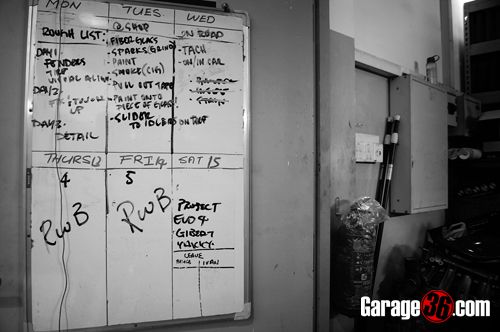 MON
ROUGH LIST:
DAY 1
FENDERS
VISUAL ALIGN
DAY 2
UP
DAY 3
DETAIL
TUES
@ SHOP
- FIBERGLASS
- SPARKS (GRIND)
- PAINT
- SMOKE (CIG)
- PULL OUT TAPE
- PAINT ONTO
PIECE OF GLASS!
- SLIDER
TO IDLERS ON TREF
WED
ON ROAD
- TACH
- ON/IN CAR
THURS 13
4
RWB
FRI 14
5
RWB
SAT 15
PROJECT
EVO 4
GIBERT
YAKKY
LEAVE
IVAN
Garage36.com